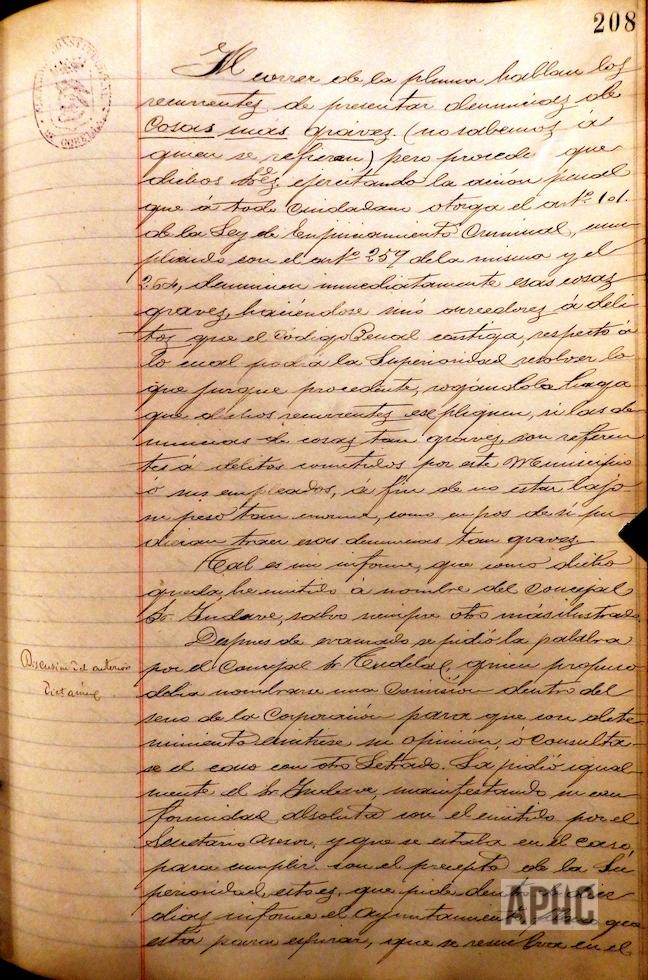 208
Al correr de la pluma hablan los
recurrentes, de presentar denuncias de
cosas más gráves (no sabemos á
quien se refieran) pero procede que
dichos tres ejercitando la acion penal
que á todo Ciudadano otorga el artº 101.
de la Ley de Enjuiciamiento Criminal, cum
pliendo con el artº 259 de la misma y el
264, denuncien inmediatamente esas cosas
graves, haciéndose mis acreedores á deli
tos que el Código Penal castiga, respecto á
lo cual podrá la Superioridad resolver lo
que juzgue procedente, rogándola haga
que dichos recurrentes espliquen, si las de
nuncias de cosas tan graves, son referen
tes á delitos cometidos por este Municipio
ó sus empleados, á fin de no estar bajo
un peso tan enorme, como en pos de si pu
dieran traer esas denuncias tan graves.
Tal es mi informe, que como dicho
queda, he emitido á nombre del Concejal
Sr. Yndave, salvo siempre otro más ilustrado.
Discusion del anterior
dictámen
Despues de examinado se pidió la palabra
por el Concejal Sr. Tudela, quien propuso
debia nombrarse una Comisión dentro del
seno de la Corporación para que con dete-
nimiento emitiese su opinión, ó consulta-
se el caso con otro Letrado. La pidió igual-
mente el Sr. Yndave, manifestando su con
formidad absoluta con el emitido por el
Secretario Asesor, y que se estaba en el caso
para cumplir con el precepto de la Su
perioridad, esto es, que pide
dias informe el Ayuntamiento
esta para espirar, que se resuelva en el
APHC